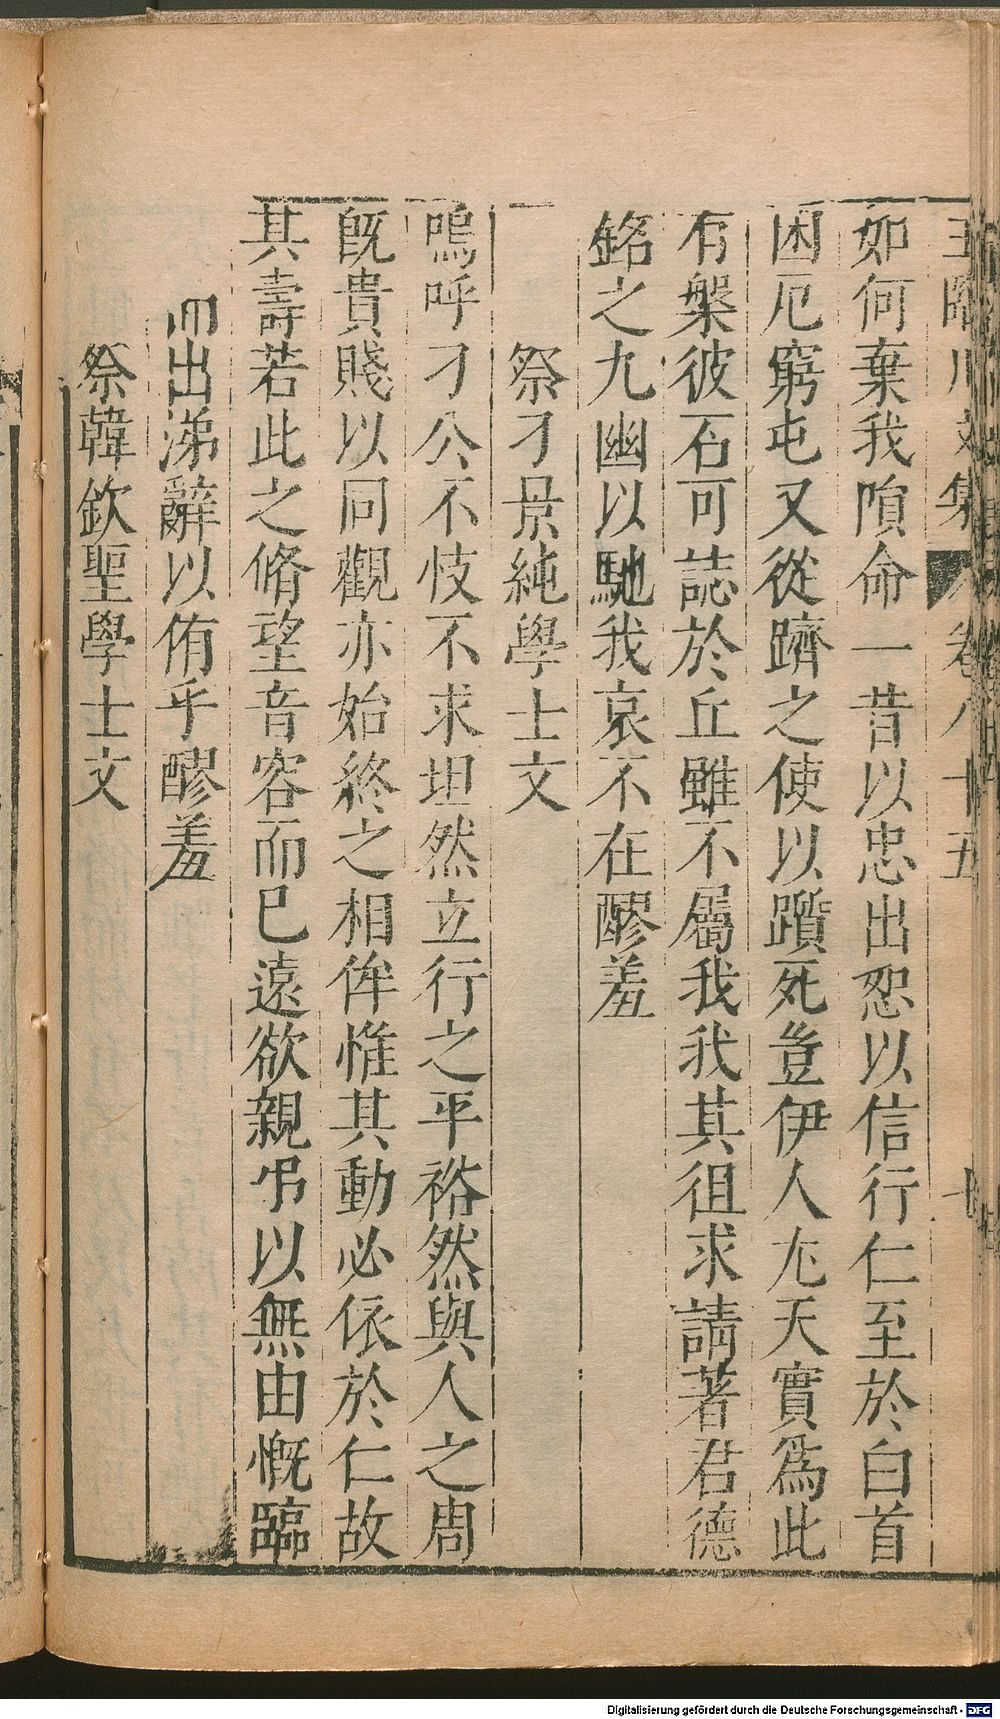 王臨川文集 卷八十五 十
如何棄我隕命一昔以忠出恕以信行仁至於白首
困厄窮屯又從躋之使以躓死豈伊人尤天實爲此
有槃彼石可誌於丘雖不屬我我其徂求請著君德
銘之九幽以馳我哀不在醪羞
祭刁景純學士文
嗚呼刁公不忮不求坦然立行之平裕然與人之周
旣貴賤以同觀亦始終之相侔惟其動必依於仁故
其壽若此之脩望音容而已遠欲親弔以無由慨臨
出涕辭以侑乎醪羞
祭韓欽聖學士文
Digitalisierung gefördert durch die Deutsche Forschungsgemeinschaft - DFG